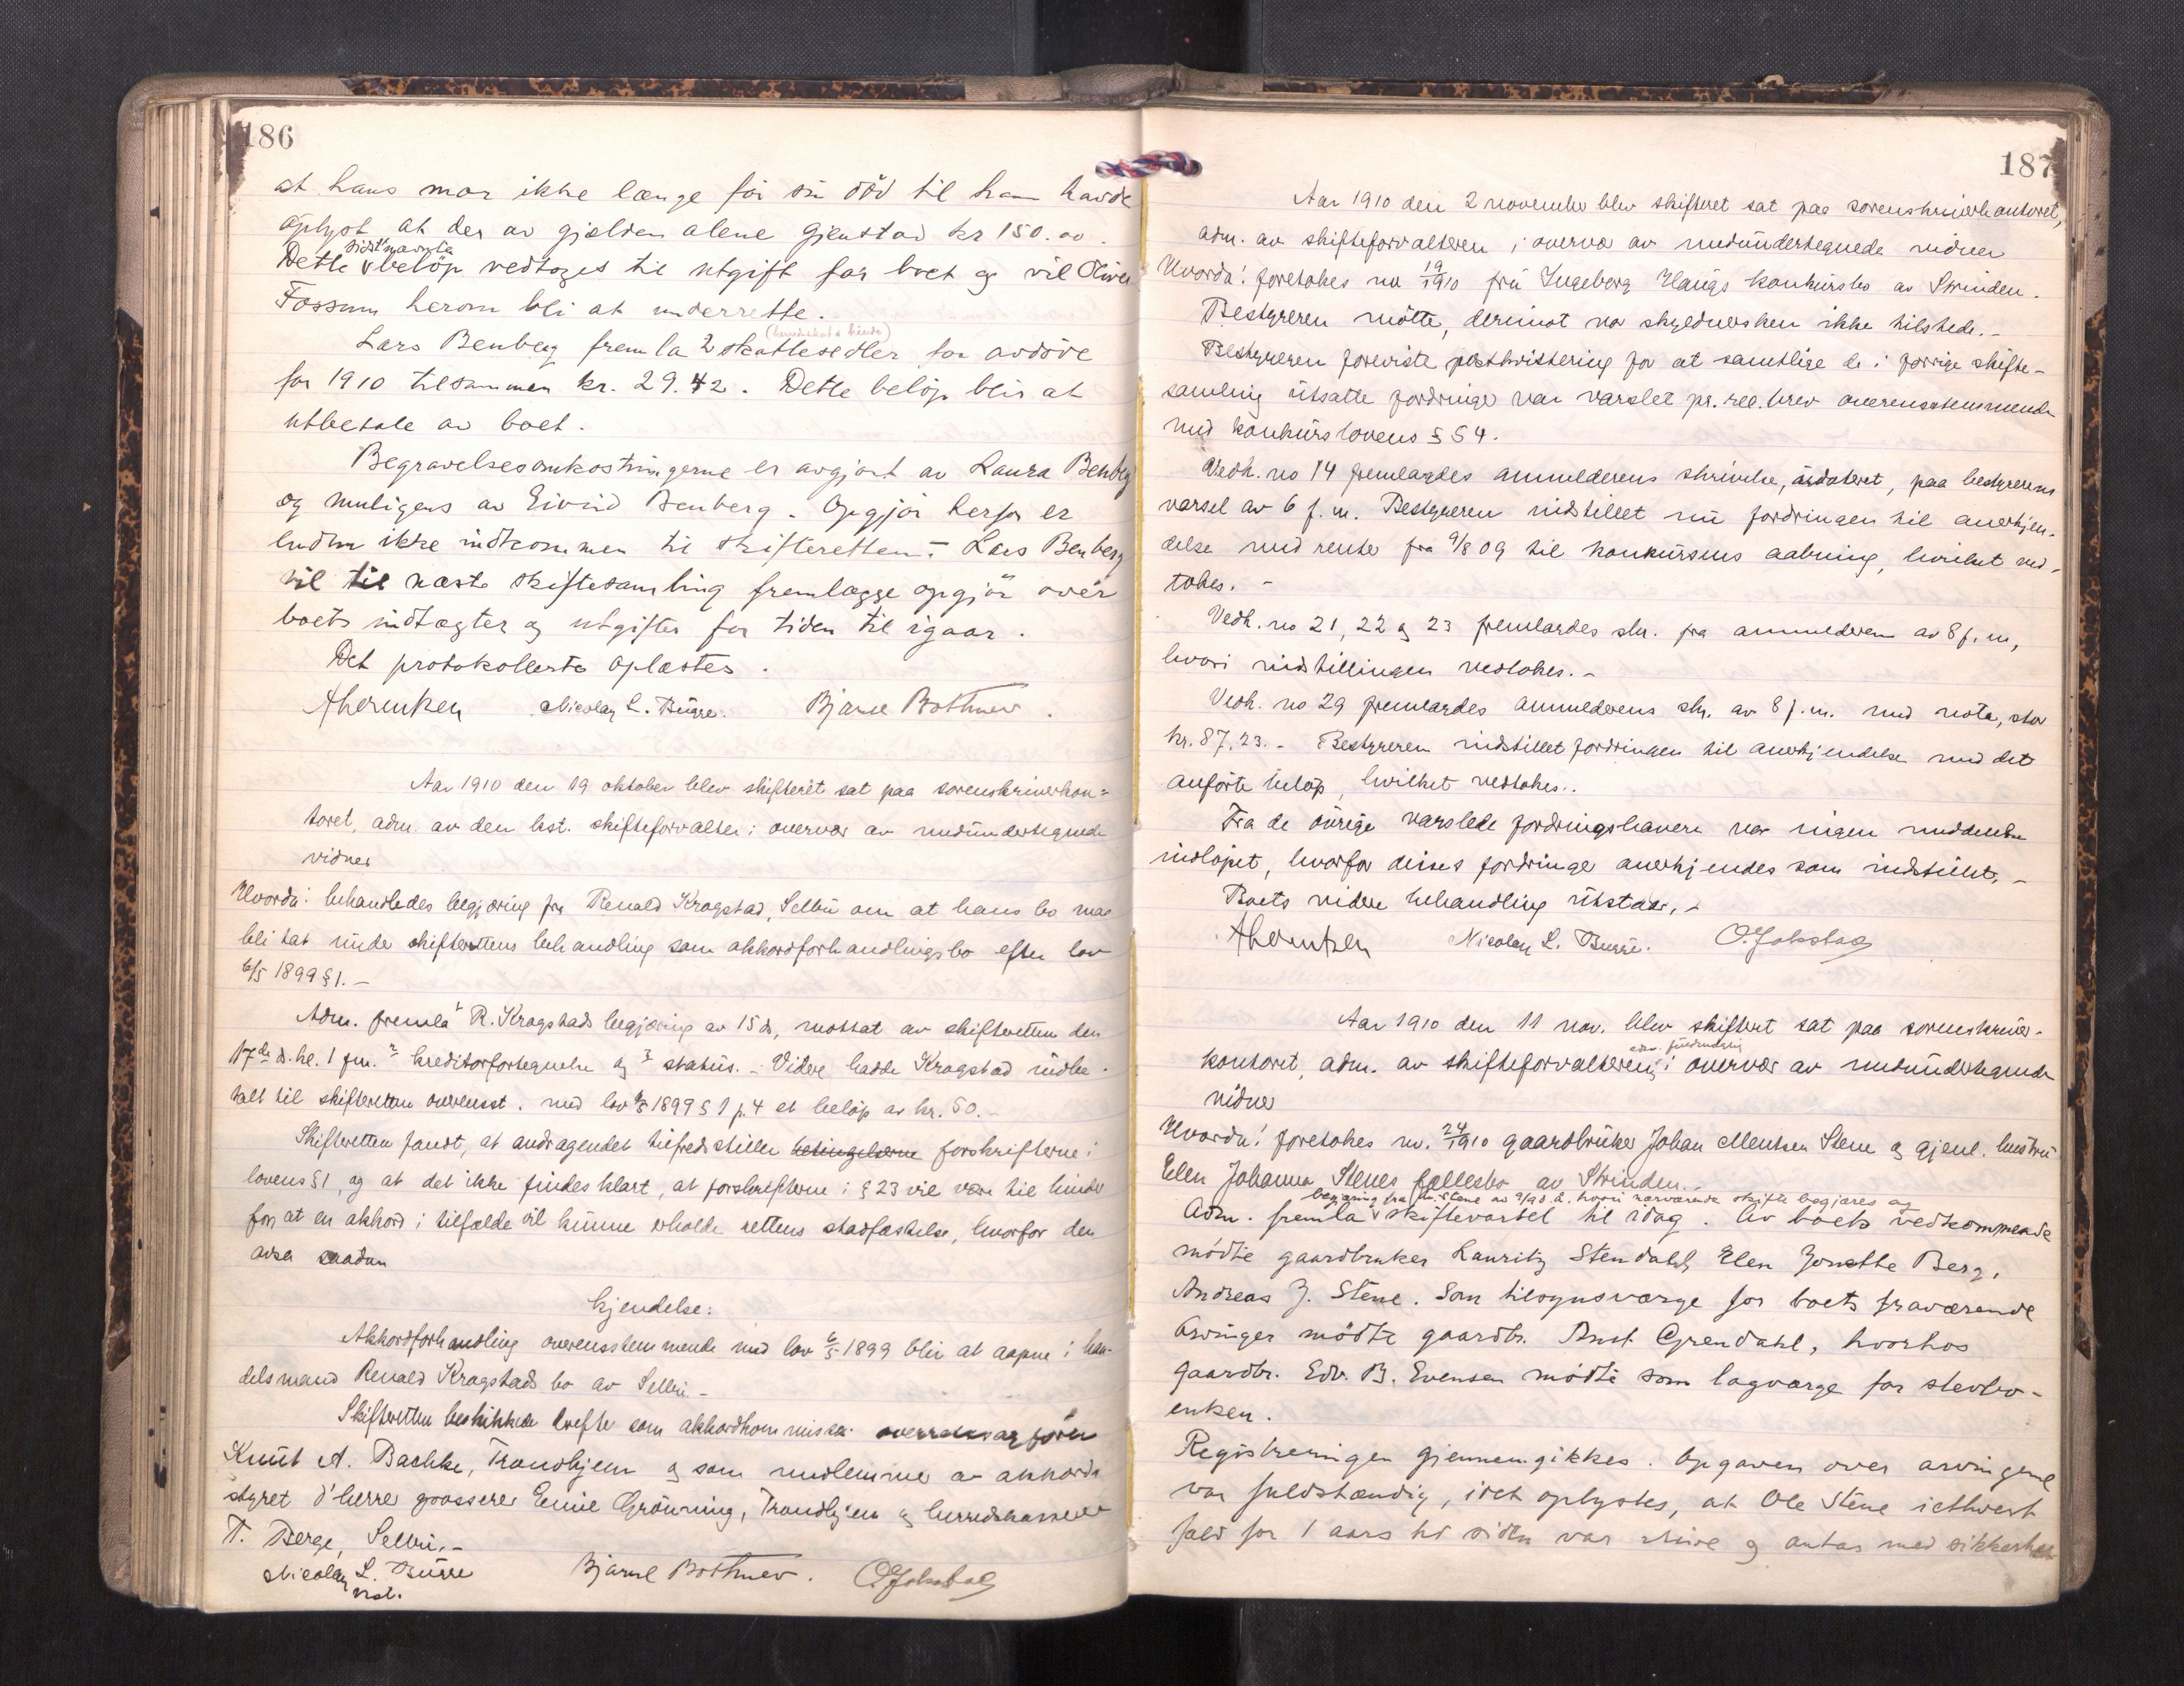 186
at hans mor ikke længe før sin död til ham havde
oplyst at der av gjælden alene gjenstod kr 150. 00.
sidstnævnte
Dette belöp vedtoges til utgift for boet og vil Oliver
Fossum herom bli at underrette.
Lars Benberg fremla 2 skattesedler for avdöde
for 1910 tilsammen kr. 29.42. Dette belöp blir at
utbetale av boet.
Begravelsesomkostningerne er avgjort av Laura Benberg
og muligens av Eivind Benberg. Opgjör herfor er
endnu ikke indkommen til skifteretten. - Lars Benberg
vil til næste skiftesamling fremlægge opgjör over
boets indtægter og utgifter for tiden til igaar.
Det protokollerte oplæstes.
Nicolay L. Bugge. Bjarne Bothner.
Aar 1910 den 19 oktober blev skifteret sat paa sorenskriverkon=
toret, adm. av den best. skifteforvalter i overvær av medundertegnede
vidner
Hvorda: behandledes begjæring fra Renald Kragstad, Selbu om at hans bo maa
bli tat under skifterettens behandling som akkordforhandlingsbo efter lov
6/5 1899 § 1. -
Adm. fremla 1 R. Kragstads begjæring av 15 ds, mottat av skifteretten den
17de d. kl. 1 fm. 2 kreditorfortegnelse og 3 status. - Videre hadde Kragstad indbe-
talt til skifteretten overensst. med lov 6/5 1899 § 1 p. 4 et belöp av kr. 50. -
Skifteretten fandt, at andragendet tilfredsstiller betingelserne forskrifterne i
lovens § 1, og at det ikke findes klart, at forskrifterne i § 23 vil være til hinder
for, at en akkord i tilfælde vil kunne erholde rettens stadfæstelse, hvorfor den
avsa saadan
Kjendelse:
Akkordforhandling overensstemmende med lov 6/5 1899 blir at aapne i han-
delsmand Renald Kragstads bo av Selbu -
Skifteretten beskikket derefter som akkordkommissær overretssagförer
Knut A. Bachke, Trondhjem og som medlemmer av akkord-
styret d'herrer grosserer Emil Grönning, Trondhjem og herredskasserer
T. Berge, Selbu. -
Nicolay L. Bugge Bjarne Bothner. O. Jakobsen
vid.
187
Aar 1910 den 2 november blev skifteret sat paa sorenskriverkontoret,
adm. av skifteforvalteren i overvær av medundertegnede vidner
Hvorda! foretokes no 19/1910 fru Ingeborg Haugs konkursbo av Strinden.
Bestyreren mötte, derimot var skyldnersken ikke tilstede. -
Bestyreren foreviste postkvittering for at samtlige de i forrige skifte-
samling utsatte fordringer var varslet pr. rec. brev overensstemmende
med konkurslovens § 54.
Vedk. no 14 fremlagdes anmelderens skrivelse, udateret, paa bestyrerens
varsel av 6 f. m. Bestyreren indstillet nu fordringen til anerkjen-
delse med rente fra 9/8 09 til konkursens aabning, hvilket ved-
tokes. -
Vedk. no 21, 22 og 23 fremlagdes skr. fra anmelderen av 8 f. m,
hvori indstillingen vedtokes. -
Vedk. no 29 fremlagdes anmelderens skr. av 8 f. m. med nota, stor
kr. 87,23. - Bestyreren indstillet fordringen til anerkjendelse med det
anförte belöp, hvilket vedtokes..
Fra de övrige varslede fordringshavere var ingen meddelelse
indlöpet, hvorfor disses fordringer anerkjendes som indstillet. -
Boets videre behandling utstaar. -
Nicolay L. Bugge. O. Jakobsen
Aar 1910 den 11 nov. blev skifteret sat paa sorenskriver-
kontoret, adm. av skifteforvalteren i overvær av medundertegnede
vidner
Hvorda! foretokes no. 24/1910 gaardbruker Johan Mentsen Stene og gjenl. hustru
Elen Johanna Stenes fællesbo av Strinden. -
begjæring fra Stene av 9/9 d. a. hvori nærværende skifte begjæres og
Adm. fremla skiftevarsel til idag. Av boets vedkommende
mödte gaardbruker Lauritz Stendahl, Elen Jonette Berg,
Andreas J. Stene. Som tilsynsværge for boets fraværende
arvinger mödte gaardbr. Anst Grendahl, hvorhos
gaardbr. Edv. B. Evensen mödte som lagværge for stervbo-
enken.
Registreringen gjennemgikkes. Opgaven over arvingene
var fuldstændig, idet oplystes, at Ole Stene iethvert
fald for 1 aars tid siden var ilive og antas med sikkerhet